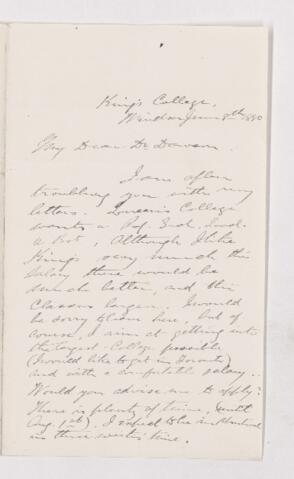 King's College,
Windsor June 8th 1890
My Dear Dr Dawson.
I am often
troubling you with my
letters. Queen's College
wants a Prof. Zool. Geol.
& Bot, Although I like
King's very much the
salary there would be
much better, and the
Classes larger. I would
be sorry to leave here, but of
course, I aim at getting into
the largest College possible
(I would like to get in Toronto)
and with a comfortable salary.
Would you advise me to apply?
There is plenty of time, (until
Aug. 1st). I expect to be in Montreal
in three weeks' time.